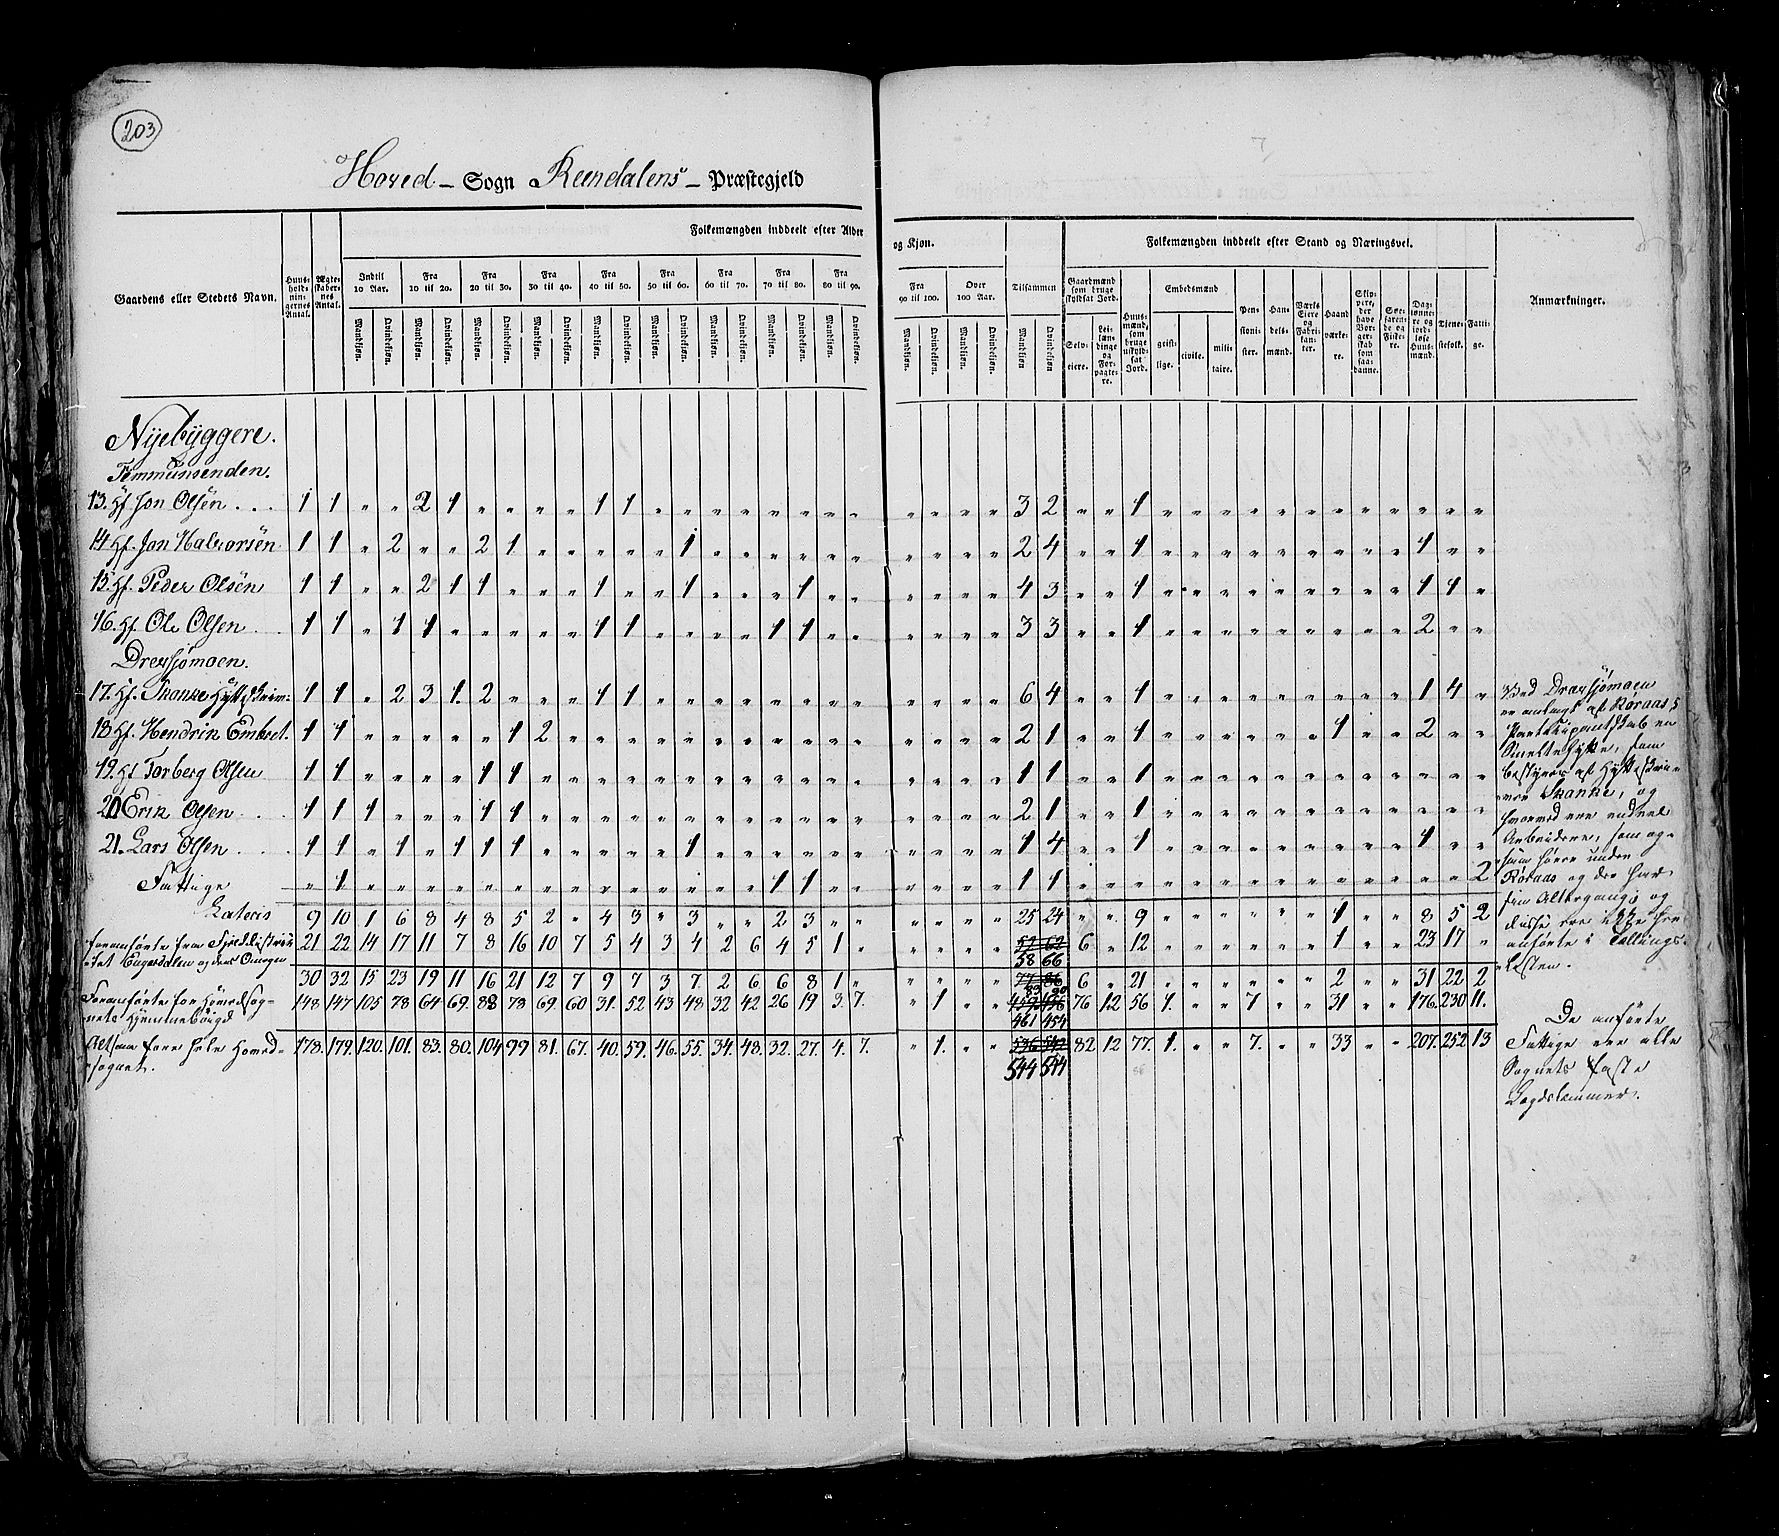 203
Hored - Sogn Rendalens - Præstegjeld
Folkemængden inddeelt efter Alder og Kjøn.
Folkemængden inddeelt efter Stand og Næringsvei.
Gaardens eller Stedets Navn.
Huusholdningernes Antal.
Ægteskabernes Antal.
Indtil 10 Aar.
Fra 10 til 20.
Fra 20 til 30.
Fra 30 til 40.
Fra 40 til 50.
Fra 50 til 60.
Fra 60 til 70.
Fra 70 til 80.
Fra 80 til 90.
Fra 90 til 100.
Over 100 Aar.
Tilsammen
Mandkjøn. Qvindekjøn.
Gaardmænd som bruge skyldsat Jord.
Selveiere.
Leilændinge og Forpagtere.
Huusmænd, som bruge uskyldsat Jord.
Embedsmænd
geistlige. civile. militaire.
Pensionister.
Handelsmænd.
Værks Eiere og Fabrikanter.
Haandværkere.
Skippere, der have Borgerskab som saadanne.
Søefarende og Fiskere.
Daglønnere og jordløse Huusmænd.
Tjenestefolk.
Fattige.
Anmærkninger.
Nyebyggere.
Femmunsenden.
13. Hf Jon Olsen . . . 1 1 " " 2 1 " " " " 1 1 " " " " " " " " " " " 3 2 " " 1 " " " " " " " " " " " "
14 Hf. Jon Halvorsen 1 1 " 2 " " 2 1 " " " " " 1 " " " " " " " " " " 2 4 " " 1 " " " " " " " " " 1 " "
15. Hf. Peder Olsen 1 1 " " 2 1 1 " " " 1 " " 1 " " " 1 " " " " " " 4 3 " " 1 " " " " " " " " " 1 1 "
16. Hf. Ole Olsen 1 1 " 1 1 " " " " " 1 1 " " " " 1 1 " " " " " " 3 3 " " 1 " " " " " " " " " 2 " "
Drevsjømoen.
17. Hf. Skanke Hytteskriv: 1 1 " 2 3 1. 2 " " " 1 1 " " " " " " " " " " " " 6 4 " " 1 " " " " " " " " " 1 4 "
18 Hf. Hendrik Embret. 1 1 " " " " " 1 2 " " " " " " " " " " " " " " " 2 1 " " 1 " " " " " " 1 " " 2 " "
19. Hf Torberg Olsen 1 1 " " " " 1 1 " " " " " " " " " " " " " " " " 1 1 " " 1 " " " " " " " " " " " "
20 Erik Olsen . . . 1 1 1 " " " 1 1 " " " " " " " " " " " " " " " " 2 1 " " 1 " " " " " " " " " " " "
21. Lars Olsen . . . . 1 1 " 1 " 1 1 1 " " " " " 1 " " " " " " " " " " 1 4 " " 1 " " " " " " " " " 1 " "
Fattige " 1 " " " " " " " " " " " " " " 1 1 " " " " " " 1 1 " " " " " " " " " " " " " " 2
Lateris 9 10 1 6 8 4 8 5 2 " 4 3 " 3 " " 2 3 " " " " " " 25 24 " " 9 " " " " " " 1 " " 8 5 2
21 22 14 17 11 7 8 16 10 7 5 4 3 4 2 6 4 5 1 " " " " " 52 62 6 " 12 " " " " " " 1 " " 23 17 "
58 66
30 32 15 23 19 11 16 21 12 7 9 7 3 7 2 6 6 8 1 " " " " " 77 86 6 " 21 " " " " " " 2 " " 31 22 2
83 90
148 147 105 78 64 69. 88 78 69. 60 31. 52 43 48 32 42 26 19 3. 7. " 1 " " 76 12 56 1. " " 7 " " 31 " " 176. 230 11.
461 454
Altsaa for hele Hored-sognet. 178. 179. 120. 101. 83. 80. 104 99 81. 67. 40. 59. 46. 55. 34. 48. 32. 27. 4. 7. " 1. " " 536 542 82 12 77. 1. " " 7. " " 33 " " 207. 252 13
544 544
86
Ved Drevsjømoen
er anlagt af Røraas
Participantskab en
Smeltehytte, som
bestyres af Hytteskri-
ver Skanke, og
hvorved ere endeel
Arbeidere, som og-
saa høre under
Røraas og der har
sin Altergang, og
disse ere ikke her
anførte i Tællings-
Listen.
De anførte
Fattige ere alle
Sognets faste
Lægdslemmer.